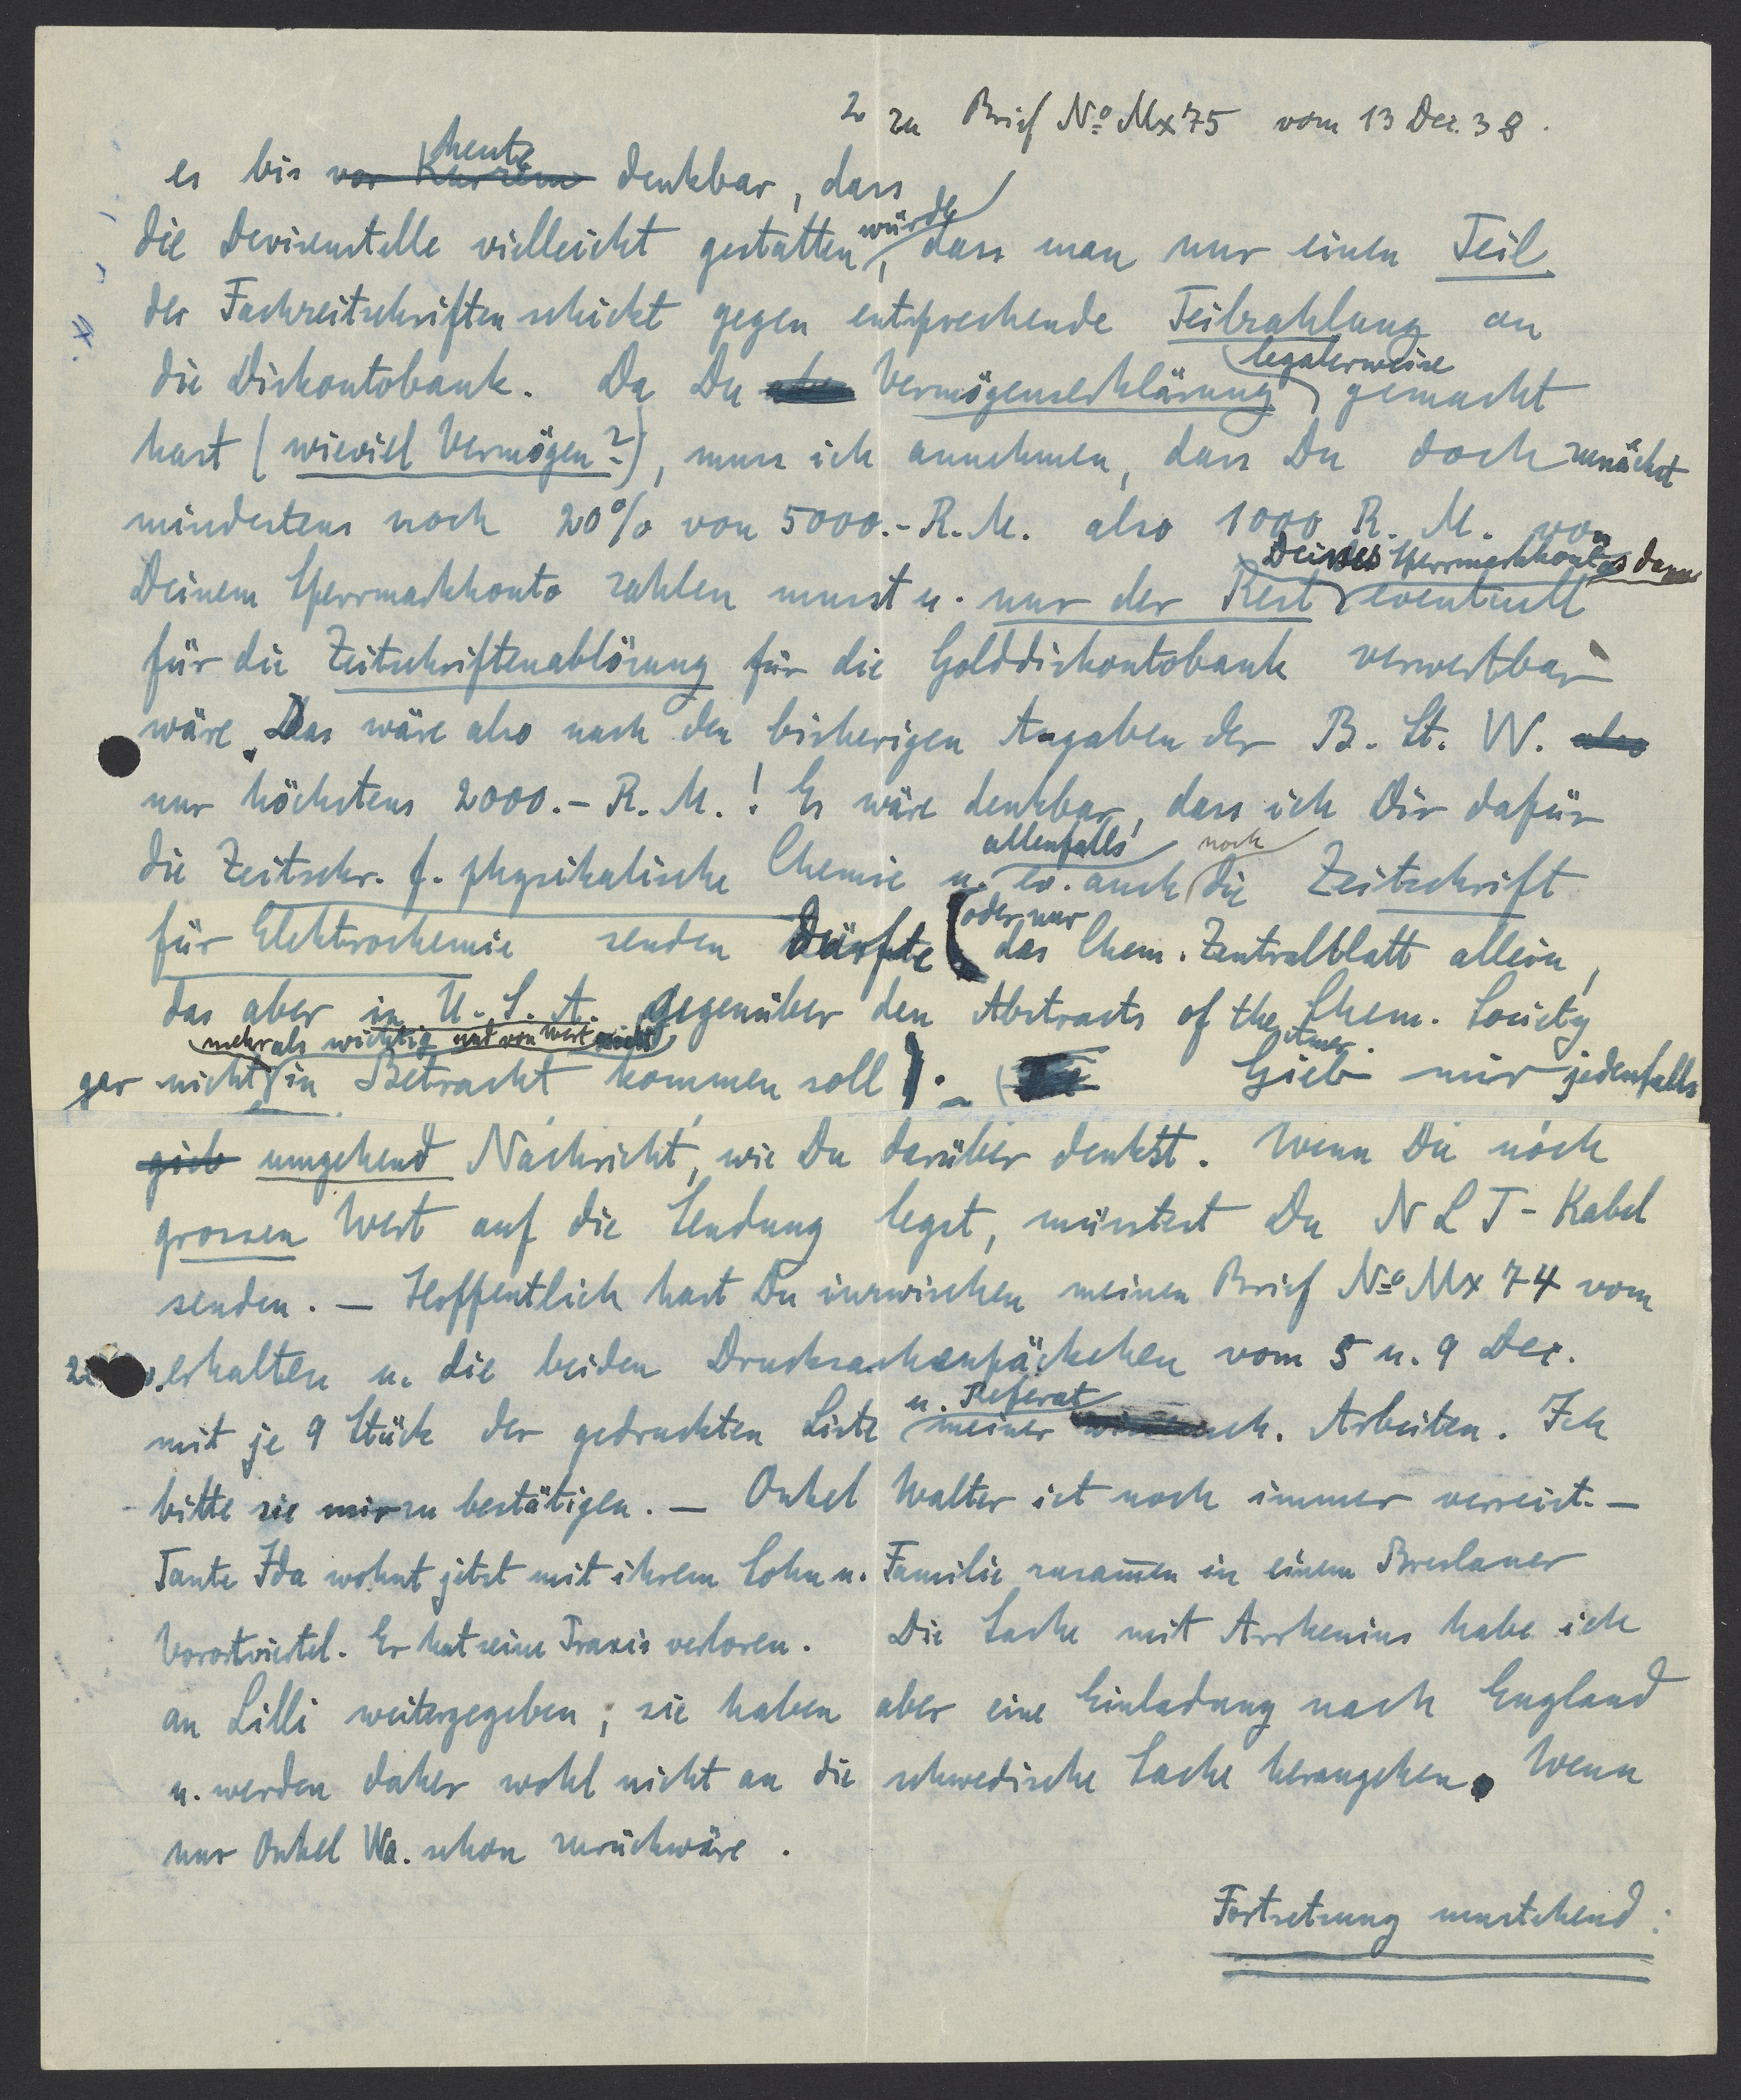 2 zu Brief No Mx75 vom 13 Dez. 38.
heute
es bis vor Kurzem denkbar, dass
die Devisenstelle vielleicht gestatten würde, dass man nur einen Teil
der Fachzeitschriften schickt gegen entsprechende Teilzahlung an
legalerweise
die Diskontobank. Da Du Vermögenserklärung gemacht
hast (wieviel Vermögen?), muss ich annehmen, dass Du doch zunächst
mindestens noch 20% von 5000.- R.M. also 1000 R. M. von
Deines Sperrmarkkontos dann
Deinem Sperrmarkkonto zahlen musst u. nur der Rest eventuell
für die Zeitschriftenablösung für die Golddiskontobank verwertbar
wäre. Das wäre also nach den bisherigen Angaben der B. St. W. also
nur höchstens 2000.- R. M.! Es wäre denkbar, dass ich Dir dafür
allenfalls noch
die Zeitschr. f. physikalische Chemie u. ev. auch die Zeitschrift
oder nur
für Elektrochemie senden dürfte (das Chem. Zentralblatt allein,
das aber in U. S. A. gegenüber den Abstracts of the Chem. Society
mehr als wichtig und von Wert Amer.
gar nicht in Betracht kommen soll). Gieb mir jedenfalls
gieb umgehend Nachricht, wie Du darüber denkst. Wenn Du noch
grossen Wert auf die Sendung legst, müsstest Du NLT-Kabel
senden. — Hoffentlich hast Du inzwischen meinen Brief No Mx 74 vom
erhalten u. die beiden Drucksachenpäckchen vom 5 u. 9 Dez.
u. Referat
mit je 9 Stück der gedruckten Liste meiner wissensch. Arbeiten. Ich
bitte sie mir zu bestätigen. — Onkel Walter ist noch immer verreist. —
Tante Ida wohnt jetzt mit ihrem Sohn u. Familie zusam̅en in einem Breslauer
Vorortviertel. Er hat seine Praxis verloren. Die Sache mit Arrhenius habe ich
an Lilli weitergegeben; sie haben aber eine Einladung nach England
u. werden daher wohl nicht an die schwedische Sache herangehen. Wenn
nur Onkel Wa. schon zurückwäre.
Fortsetzung umstehend: